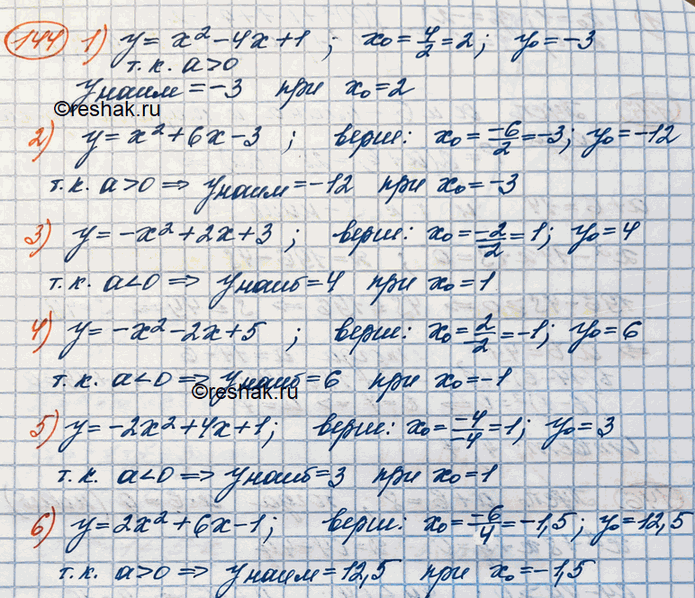 144 1) y = x² - 4x + 1 ; x₀ = 4/2 = 2; y₀ = -3
т.к. a>0
yнаим = -3 при x₀ = 2
©reshak.ru
2) y = x² + 6x - 3 ; верш: x₀ = -6/2 = -3; y₀ = -12
т.к. a>0 ⇒ yнаим = -12 при x₀ = -3
3) y = -x² + 2x + 3 ; верш: x₀ = -2/-2 = 1; y₀ = 4
т.к. a<0 ⇒ yнаиб = 4 при x₀ = 1
4) y = -x² - 2x + 5 ; верш: x₀ = 2/-2 = -1; y₀ = 6
т.к. a<0 ⇒ yнаиб = 6 при x₀ = -1
©reshak.ru
5) y = -2x² + 4x + 1; верш: x₀ = -4/-4 = 1; y₀ = 3
т.к. a<0 ⇒ yнаиб = 3 при x₀ = 1
6) y = 2x² + 6x - 1; верш: x₀ = -6/4 = -1,5; y₀ = 12,5
т.к. a>0 ⇒ yнаим = 12,5 при x₀ = -1,5